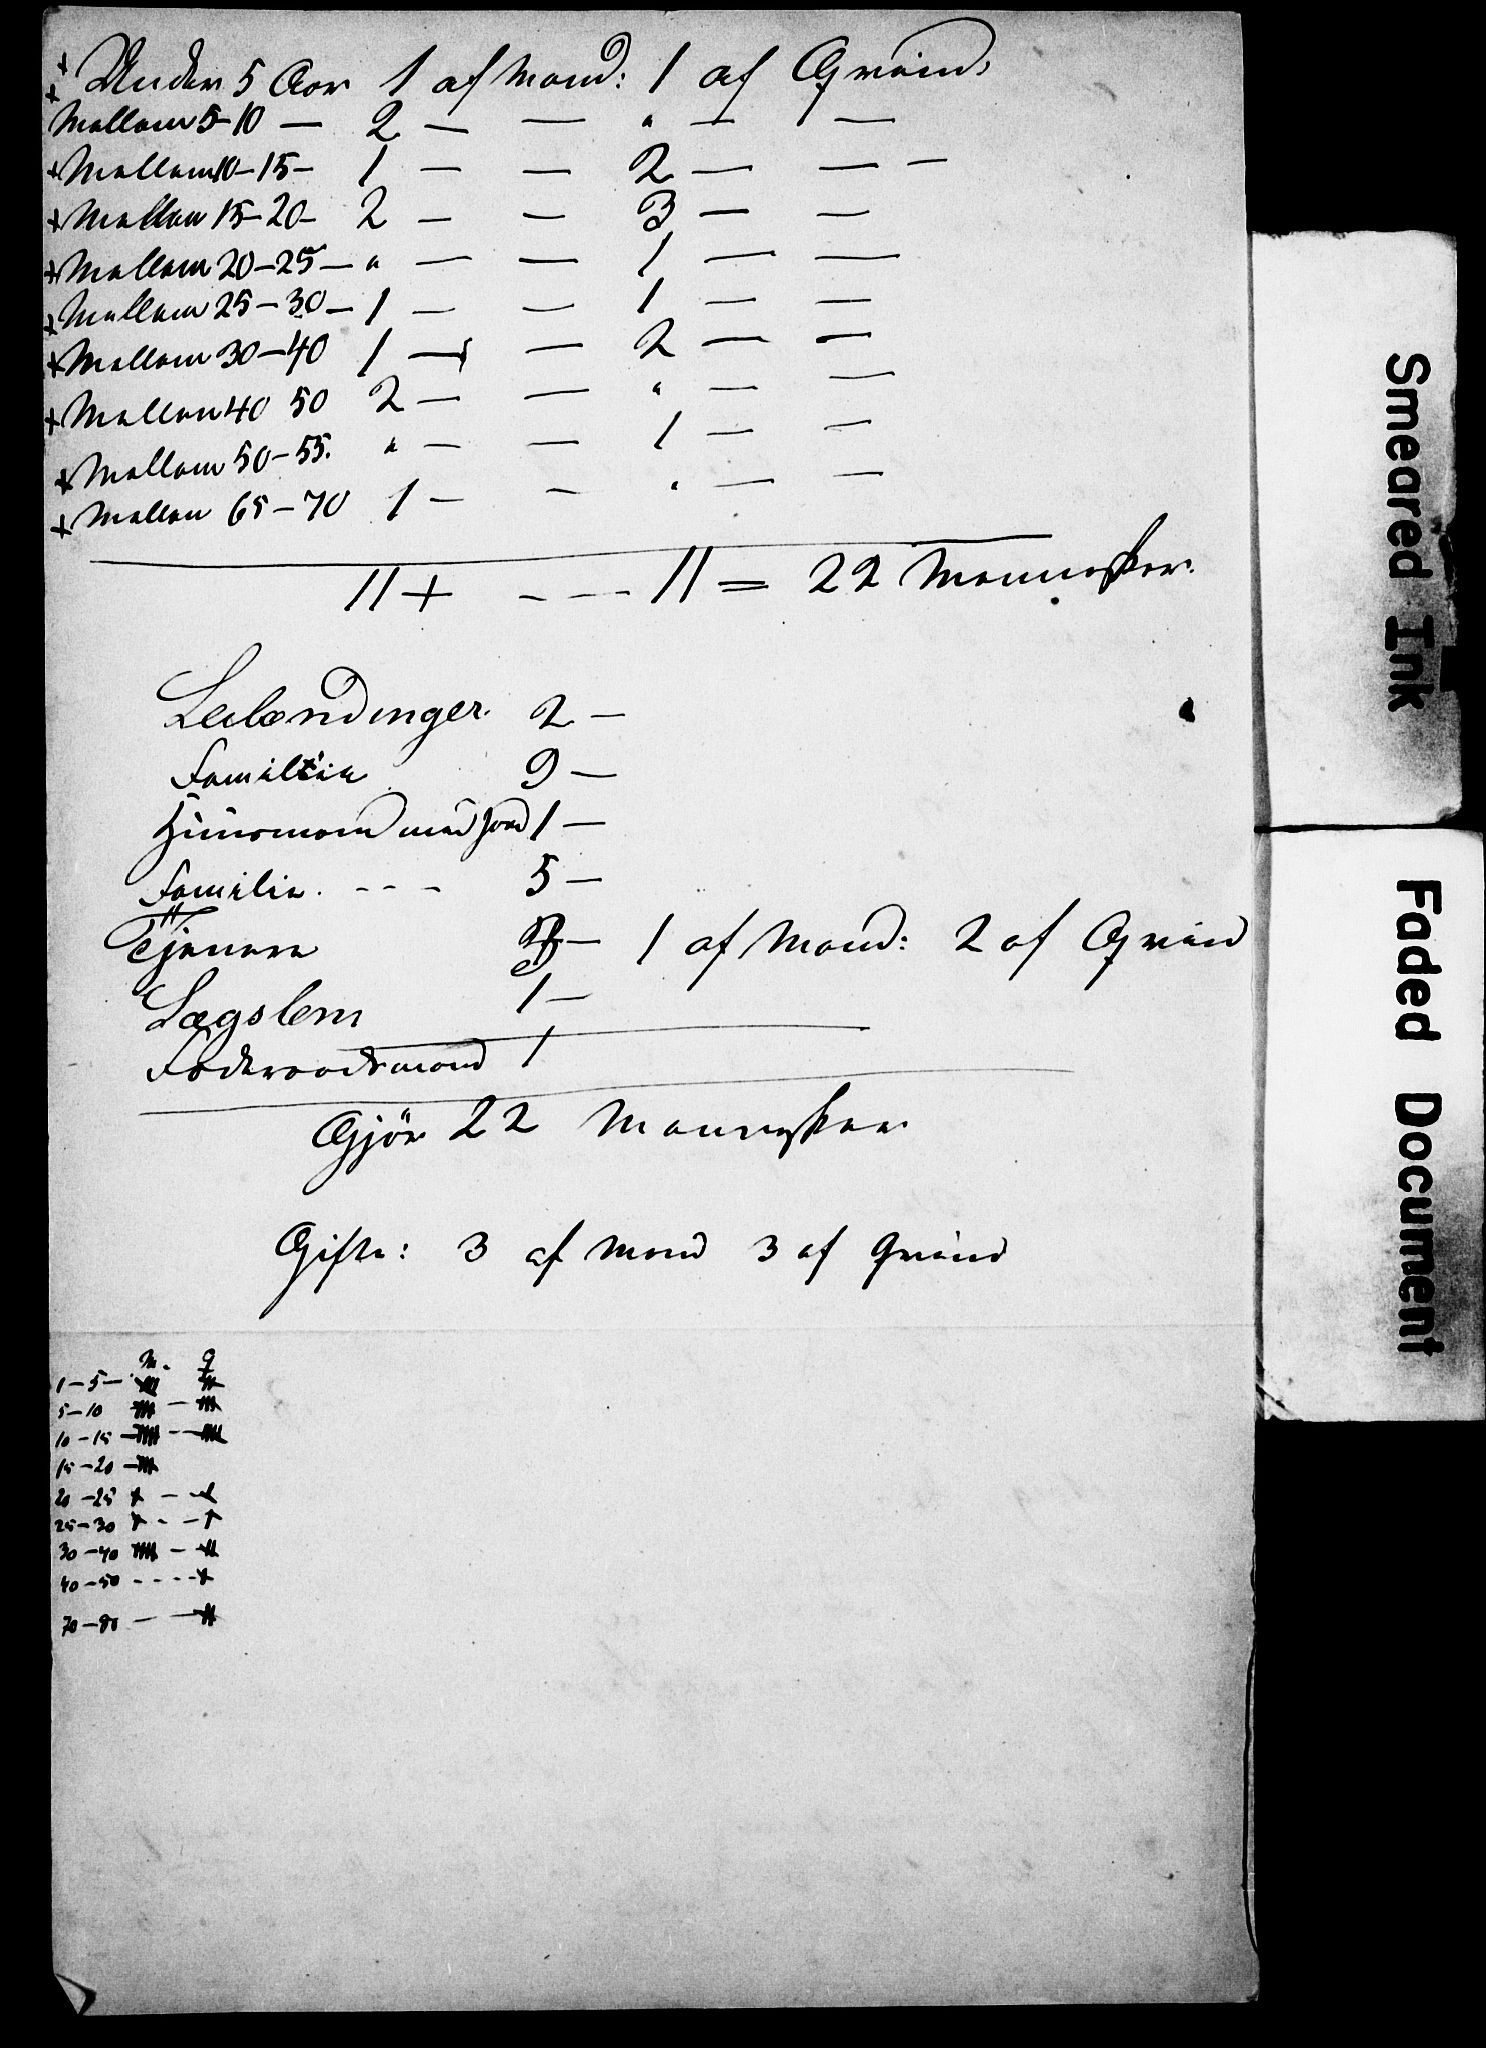 + Under 5 Aar 1 af Mand: 1 af Qvind:
+ Mellem 5-10 — 2 — — " — —
+ Mellem 10-15- 1 — — 2 — — —
+ Mellem 15-20- 2 — — 3 — —
+ Mellem 20-25- " — — 1 — —
+ Mellem 25-30- 1 — — 1 — —
+ Mellem 30-40 1 — — 2 — —
+ Mellem 40 50 2 — — " — —
+ Mellem 50-55. " — — 1 — —
+ Mellem 65-70 1 — — " — —
11 + - - - 11 = 22 Mennesker.
Leilændinger. 2 —
Familie 9 —
Huusmand med Jord 1 —
Familie. - - - 5 —
Tjenere 3 — 1 af Mand: 2 af Qvind
Lægslem 1 —
Föderaadsmand 1
Gjör 22 Mennesker
Gifte: 3 af Mand 3 af Qvind
M. Q
1-5-
5-10
10-15
15-20
20-25
25-30
30-40
40-50
70-80
Smeared Ink
Faded Document